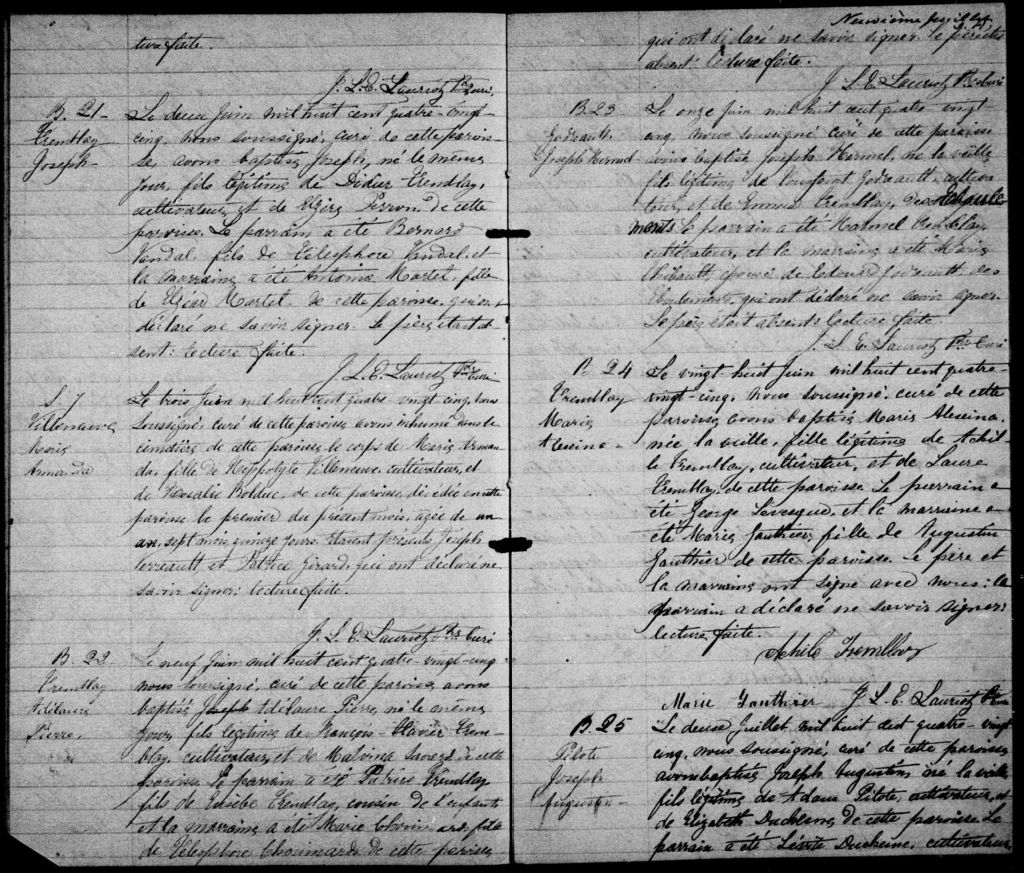 ture faite.
J. L. E. Lauriot Ptre Curé.
B. 21 -
Tremblay
Joseph -
Le deux Juin mil huit cent quatre-vingt
cinq, nous soussigné, curé de cette parois-
se, avons baptisé Joseph, né le même
jour, fils légitime de Didier Tremblay,
cultivateur, et de Perron de cette
paroisse. Le parrain a été Bernard
Vandal, fils de Télesphore Vandal, et
la marraine a été Antonia Martel, fille
de Elzéar Martel, de cette paroisse, qui ont
déclaré ne savoir signer. Le père était ab-
sent: lecture faite.
J. L. E. Lauriot Ptre Curé
S. 7
Villeneuve
Marie
Armanda
Le trois Juin mil huit cent quatre vingt cinq, nous
soussigné, curé de cette paroisse, avons inhumé dans le
cimetière de cette paroisse, le corps de Marie Arman-
da, fille de Hippolyte Villeneuve, cultivateur, et
de Rosalie Bolduc, de cette paroisse, décédée en cette
paroisse le premier du présent mois, agée de un
an, sept mois, quinze jours. Etaient présents Joseph
et Patrice Girard, qui ont déclaré ne
savoir signer: lecture faite.
J. L. E. Lauriot Ptre Curé
B. 22
Tremblay
Adélaure
Pierre.
Le neuf Juin mil huit cent quatre-vingt-cinq
nous soussigné, curé de cette paroisse, avons
baptisé Joseph Adélaure Pierre, né le même
jour, fils légitime de François-Xavier Trem-
blay, cultivateur, et de Malvina Savard de cette
paroisse. Le parrain a été Patrice Tremblay
fils de Eusèbe Tremblay, cousin de l'enfant
et la marraine a été Marie Chouinard, fille
de Télesphore Chouinard de cette paroisse,
Neuvième feuillet
qui ont déclaré ne savoir signer. Le père était
absent: lecture faite.
J. L. E. Lauriot Ptre Curé
B. 23
Godreault
Joseph Hormel
Le onze Juin mil huit cent quatre-vingt
cinq, nous soussigné curé de cette paroisse
avons baptisé Joseph Hormel, né la veille
fils légitime de Godreault, cultiva-
teur, et de Emma Tremblay, des Eboule-
ments. Le parrain a été Tremblay,
cultivateur, et la marraine a été Marie
Thibault, épouse de Edouard Godreault, des
Eboulements, qui ont déclaré ne savoir signer.
Le père était absent: lecture faite.
J. L. E. Lauriot Ptre Curé
B. 24
Tremblay
Marie
Alexina -
Le vingt-huit Juin mil huit cent quatre-
vingt-cinq, nous soussigné, curé de cette
paroisse, avons baptisé Marie Alexina,
née la veille, fille légitime de Achil-
le Tremblay, cultivateur, et de Laure
Tremblay, de cette paroisse. Le parrain a
été George Levesque, et la marraine a
été Marie Gauthier, fille de Augustin
Gauthier de cette paroisse. Le père et
la marraine ont signé avec nous: le
parrain a déclaré ne savoir signer:
lecture faite.
Achile Tremblay
Marie Gauthier J. L. E. Lauriot Ptre Curé
B. 25
Pilote
Joseph
Augustin -
Le deux Juillet, mil huit cent quatre-vingt
cinq, nous soussigné, curé de cette paroisse,
avons baptisé Joseph Augustin, né la veille,
fils légitime de Adam Pilote, cultivateur, et
de Elizabeth Duchesne, de cette paroisse. Le
parrain a été Lévite Duchesne, cultivateur